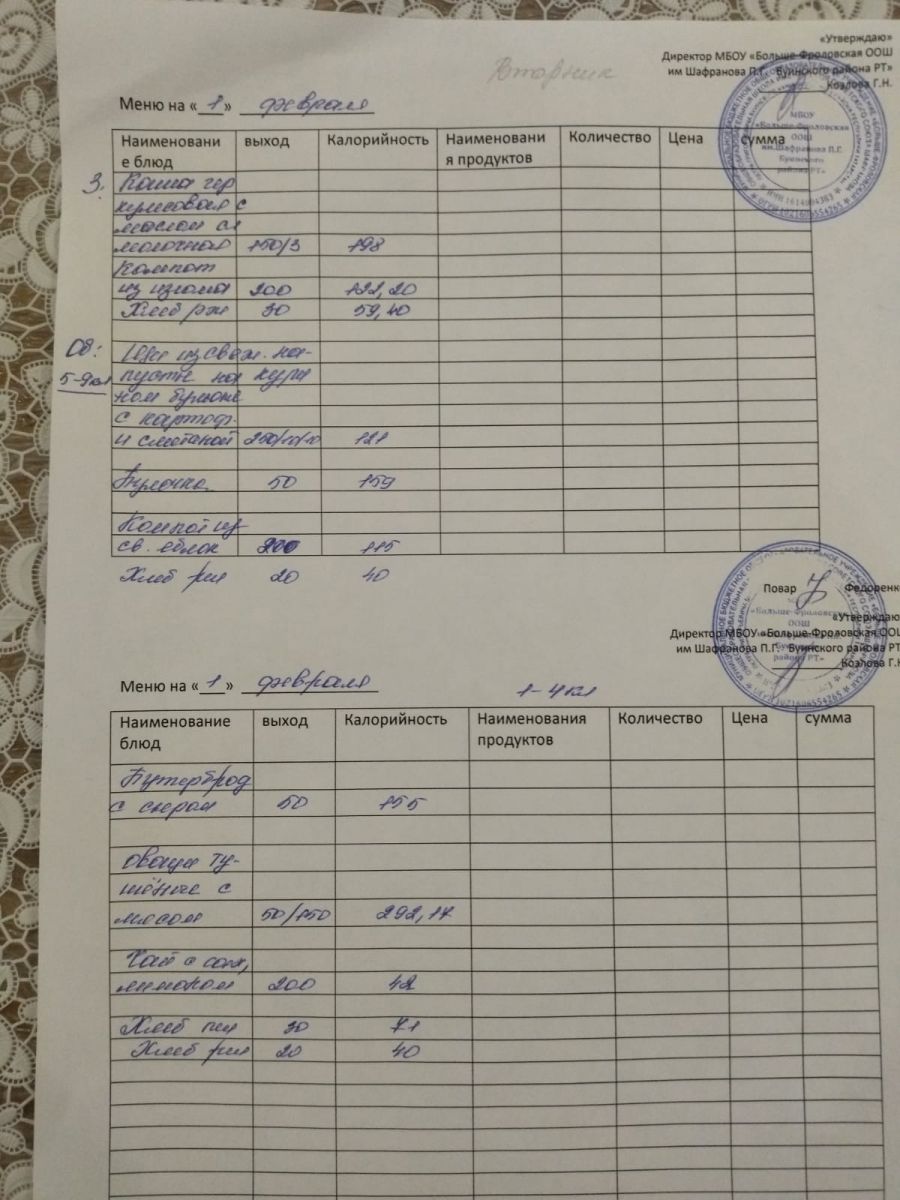 «Утверждаю»
Директор МБОУ «Больше-Фроловская ООШ
им Шафранова П.Г. Буинского района РТ»
Вторник
Козлова Г.Н.
Меню на « 1 » февраля
Наименовани
е блюд
выход
Калорийность
Наименовани
я продуктов
Количество
Цена
сумма
МБОУ
«Больше-Фроловская
ООШ
им.Шафранова П.Г.
Буинского
района РТ»
З.
Каша гер
кулесовая с
маслом сл
молочная 150/3 198
Компот
из изюма 200 122,20
Хлеб рж 30 59,40
Об:
5-9кл
Щи из свеж. ка-
пусты на кури
ном бульоне
с картоф.
и сметаной 250/10/10 121
Булочка 50 159
Компот из
св. яблок 200 115
Хлеб рж 20 40
Повар Федоренко
«Утверждаю
Директор МБОУ «Больше-Фроловская ООШ
им Шафранова П.Г. Буинского района РТ
Козлова Г.Н
Меню на « 1 » февраля
1-4 кл
Наименование
блюд
выход
Калорийность
Наименования
продуктов
Количество
Цена
сумма
Бутерброд
с сыром 50 155
Овощи ту-
шёные с
мясом 50/150 292,17
Чай с сах,
лимоном 200 42
Хлеб пш 30 71
Хлеб рж 20 40